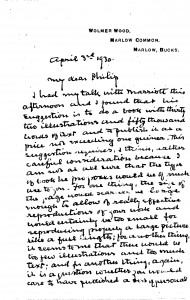 WOLMER WOOD,
MARLOW COMMON,
MARLOW, BUCKS.
April 3rd 1930.
My dear Philip
I had my talk with Marriott this
afternoon and I found that his
suggestion is to do a book with thirty
two illustrations and fifty thousand
words of text and to publish it as a
price not exceeding one guinea. This
suggestion requires, I think, rather
careful consideration because I
am not at all sure that the type
of book he proposes would be of much
use to you. For one thing, the size of
the page
enough to allow of really effective
reproductions of your work and
would certainly be too small for
reproducing properly a large picture
like a full length; for another thing
it seems to me that there would be
too few illustrations and too much
text; and for another thing again,
it is a question whether you would
care to have published a